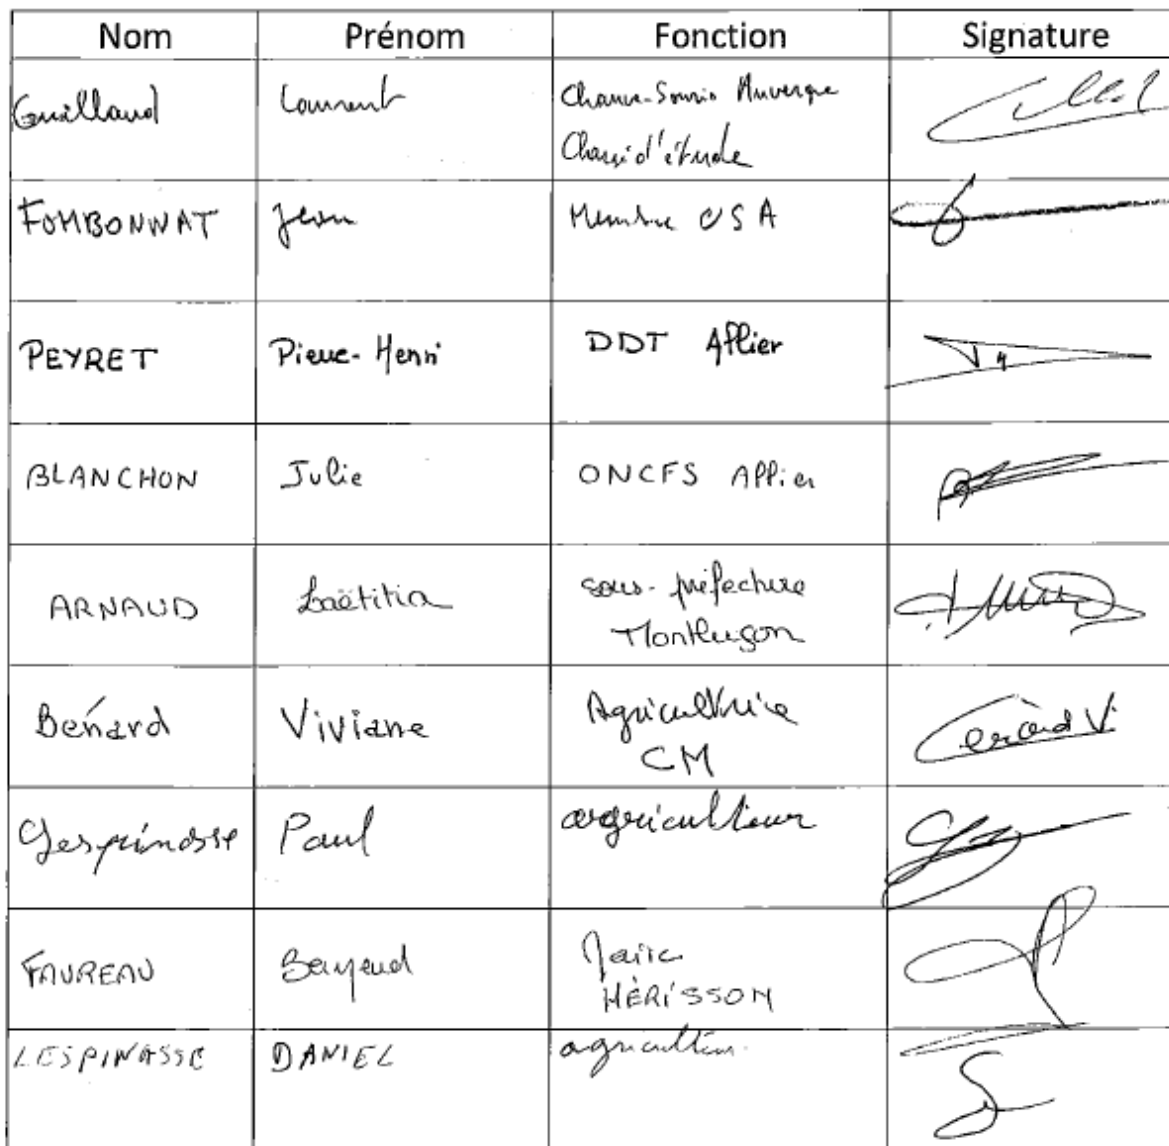 Nom Prénom Fonction Signature
Guillaud Laurent Chauve-Souris Auvergne
Chargé d'étude
FOMBONNAT Jean Membre CSA
PEYRET Pierre-Henri DDT Allier
BLANCHON Julie ONCFS Allier
ARNAUD Laëtitia sous-préfecture
Montluçon
Bénard Viviane Agricultrice
CM
Lespinasse Paul agriculteur
FAUREAU Bayaud Maire
HÉRISSON
LESPINASSE DANIEL agriculteur